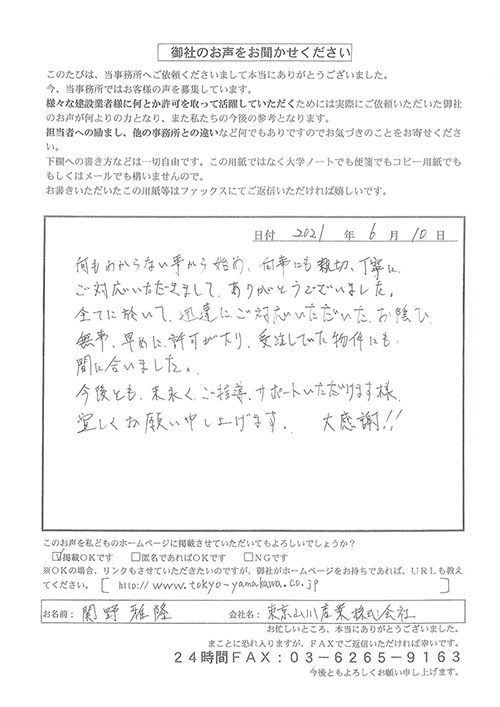 御社のお声をお聞かせください
このたびは、当事務所へご依頼くださいまして本当にありがとうございました。
今、当事務所ではお客様の声を募集しています。
様々な建設業者様に何とか許可を取って活躍していただくためには実際にご依頼いただいた御社
のお声が何よりの力となり、また私たちの今後の参考となります。
担当者への励まし、他の事務所との違いなど何でもありですのでお気づきのことをお寄せくださ
い。
下欄への書き方などは一切自由です。この用紙ではなく大学ノートでも便箋でもコピー用紙でも
もしくはメールでも構いませんので。
お書きいただいたこの用紙等はファックスにてご返信いただければ嬉しいです。
日付 2021 年 6 月 10 日
何もわからない事から始め、何事にも親切、丁寧に
ご対応いただきまして、ありがとうございました。
全てに於いて、迅速にご対応いただいた、お陰で
無事、早めに許可が下り、受注していた物件にも
間に合いました。
今後とも、末永く、ご指導、サポートいただけます様
宜しくお願い申し上げます。 大感謝!!
このお声を私どものホームページに掲載させていただいてもよろしいでしょうか?
☑掲載OKです □匿名であればOKです □NGです
※OKの場合、リンクもさせていただきたいのですが、御社がホームページをお持ちであれば、URLも教え
てください。[ http://www.tokyo-yamakawa.co.jp ]
お名前: 関野 雅隆 会社名: 東京山川産業株式会社
お忙しいところ、本当にありがとうございました。
まことに恐れ入りますが、FAXでご返信いただければ幸いです。
24時間FAX:03-6265-9163
今後ともよろしくお願い申し上げます。